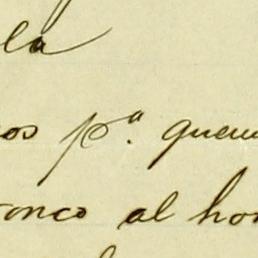 la
os p.ª quem
ronco al hon